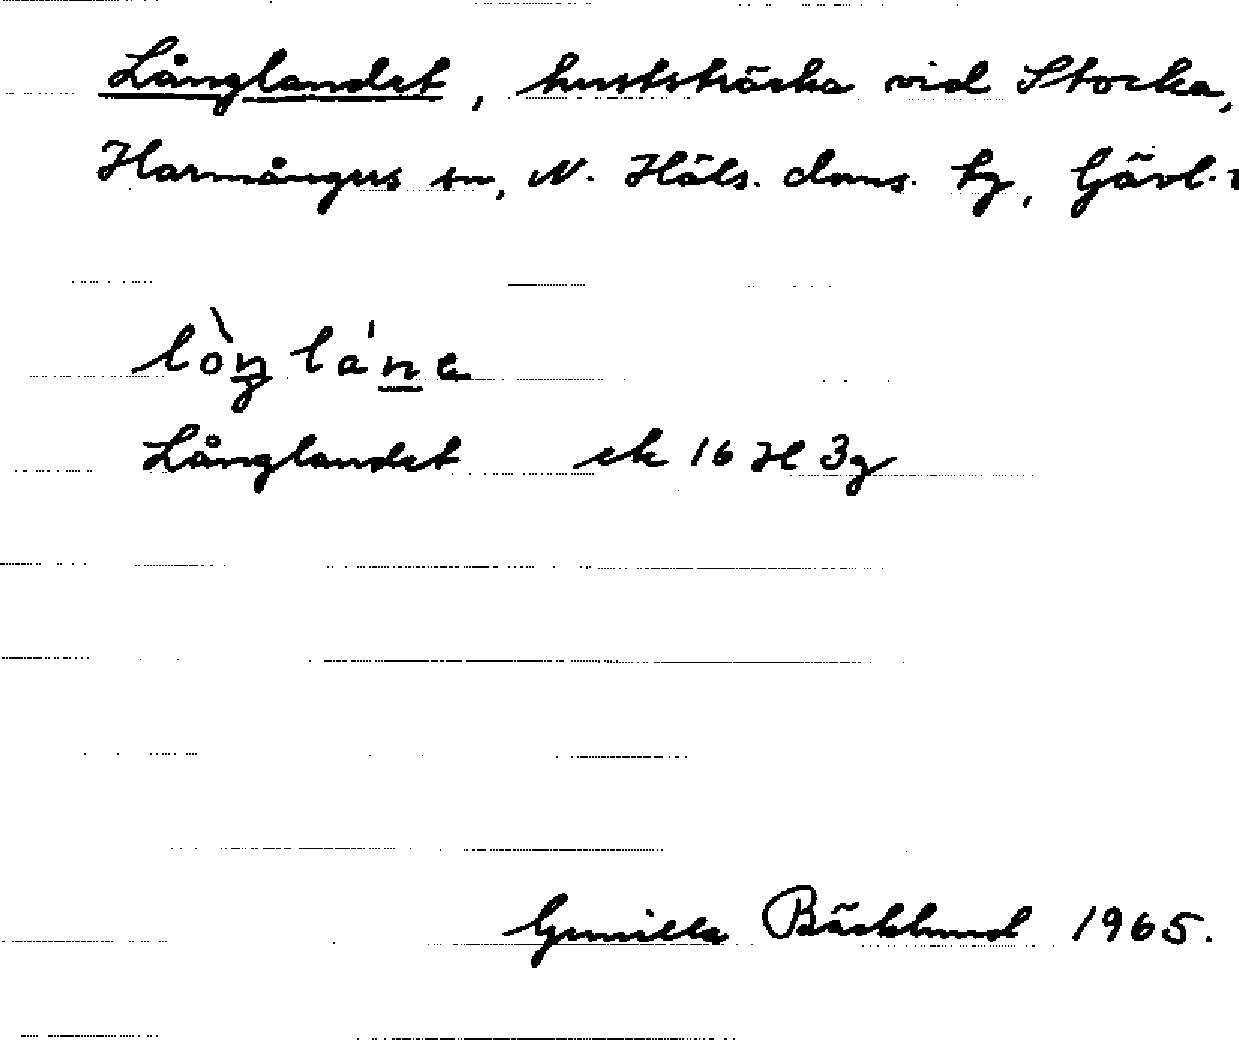 Långlandet, kuststräcka vid Stocka,
Harmångers sn, N. Häls. doms. tg, Gävl.
lòŋláne
Långlandet ek 16 H 3g
Gunilla Bäcklund 1965.